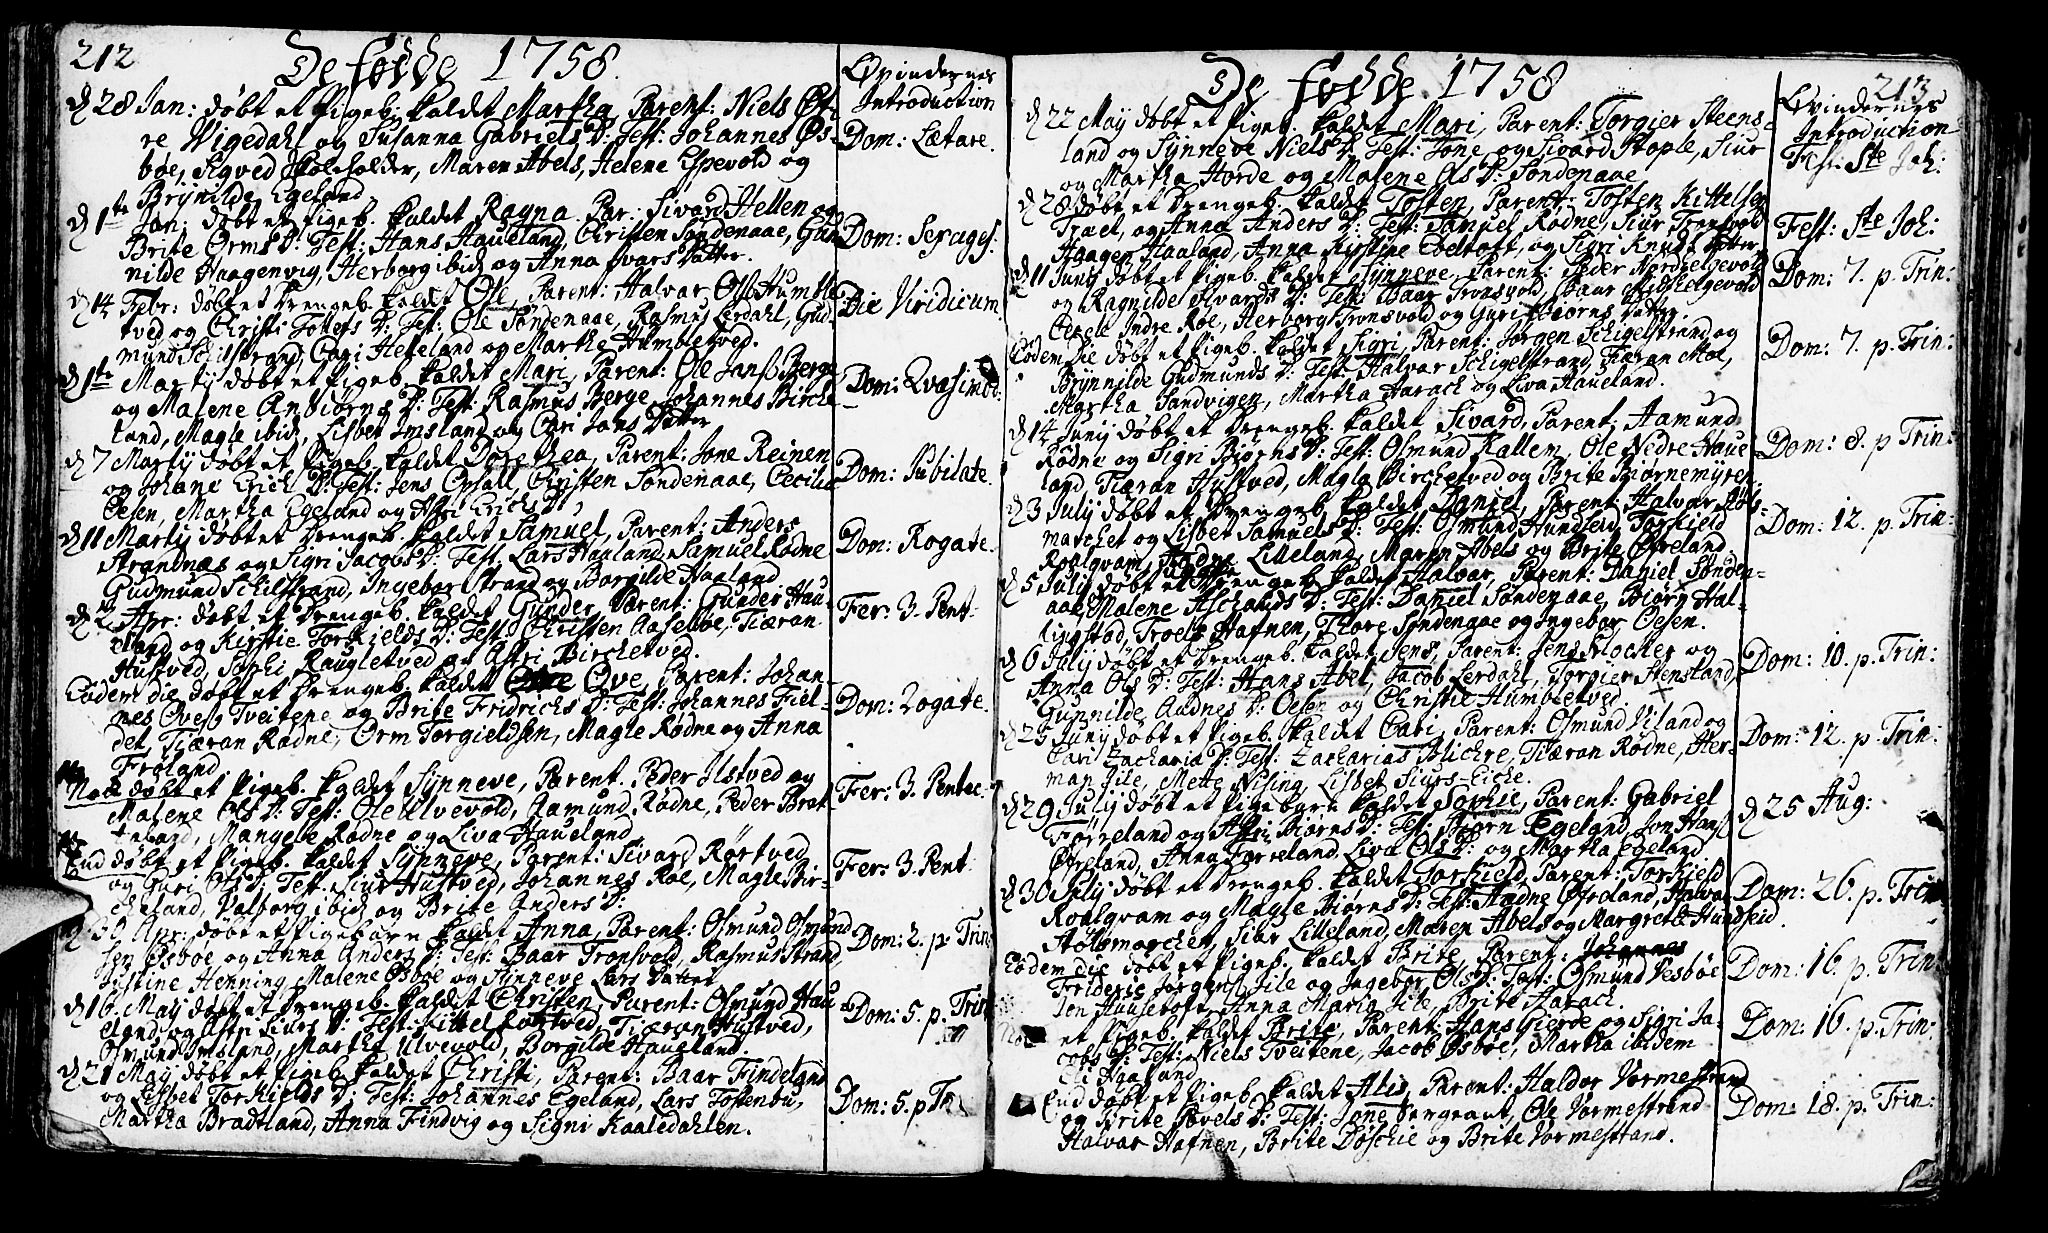 212
De fødde 1758.
Qvindernes
Introduction
d 28 Jan: døbt et Pigeb: kaldet Martha, Parent: Niels Øf-
re Vigedahl og Susanna Gabriels D: Test: Johannes Øs-
bøe, Sigved Skoleholder, Maren Abels, Helene Espevold og
Brynilde Egeland
Dom: Lætare.
d 1ste Jan: døbt et Pigeb. kaldet Ragna. Par: Sivard Hellen og
Brite Orms D: Test: Hans Haueland, Christen Søndenaae, Gun
nilde Haagenvig, Herborg ibid og Anna Ivars Datter.
Dom: Sexages:
d 14 Febr: døbt et Drengeb. kaldet Ole, Parent: Halvar Ols Humble
tved og Christi Tostens D: Test: Ole Søndenaae, Rasmus Lerdahl, Gud-
mund Schilstrand, Cari Heteland og Martha Humbletved.
Die Viridicum
d 1ste Martij døbt et Pigeb. kaldet Mari, Parent: Ole Jans Berge
og Malene Anbiørns D: Test: Rasmus Berge, Johannes Birche
land, Magle ibid, Lisbet Imsland og Cari Jans Datter
Dom: Qvasimod.
d 7 Martij døbt et Pigeb. kaldet Dorethea, Parent: Jone Reinen
og Johane Erich D: Test: Jens Opsall, Christen Søndenaae, Cecilia
Oesen, Martha Egeland og Astri Erichs D:
Dom: Jubilate.
d 11 Martij døbt et Drengeb. kaldet Samuel, Parent: Anders
Strandnæs og Sigri Jacobs D: Test: Lars Haaland, Samuel Rødne
Gudmund Schilstrand, Ingebor Strand og Borgilde Haaland
Dom: Rogate.
d 2 Apr: døbt et Drengeb. kaldet Gunder, Parent: Gunder Hau-
eland og Kirstie Torkields D: Test: Christen Aasebøe, Tiæran
Hustved, Sophi Raugletved og Astri Birchetved.
Fer: 3. Pent:
Eodem die døbt et Drengeb. kaldet Ove, Parent: Johan-
nes Oves Tveitene og Brite Fridrichs D: Test: Johannes Fiel-
det, Tiæran Rødne, Orm Torgieldsen, Magle Rødne og Anna
Frøland
Dom: Rogate.
Nok døbt et Pigeb. kaldet Synneve, Parent. Peder Ilstved og
Malene Ols D: Test: Ole Ulvevold, Aamund Rødne, Peder Brat
teland, Mangele Rødne og Liva Haueland
Fer: 3. Pentec.
End døbt et Pigeb. kaldet Synneve, Parent: Sivard Rørtved
og Guri Ols D: Test: Siur Hustved, Johannes Roe, Magle Bir-
cheland, Valborg ibid og Brite Anders D:
Fer: 3. Pent:
d 30 Apr: døbt et Pigebarn kaldet Anna, Parent: Osmund Osmund
sen Øsbøe og Anna Anders D: Test: Baar Tronsvold, Rasmus Strand,
Justine Henning, Malene Øsbøe og Synneve Lars Datter
Dom: 2. p. Trin:
d 16 May døbt et Drengeb. kaldet Christen, Parent: Osmund Hau
eland og Astri Siurs D: Test: Kittel Rørtved, Tiæran Hustved,
Osmund Imsland, Martha Ulvevold, Borgilde Haueland.
Dom: 5. p. Trin
d 21 May døbt et Pigeb. kaldet Christi, Parent: Baar Findeland
og Lisbet Torkields D: Test: Johannes Egeland, Lars Tostenbu,
Martha Bradtland, Anna Findvig og Signi Kaaledahlen.
Dom: 5. p Tr
213
De fødde 1758
Qvindernes
Introduction
d 22 May døbt et Pigeb. kaldet Mari, Parent: Torgier Steens-
land og Synneve Niels D: Test: Jone og Sivard Stople, Siur
og Martha Horde og Malene Ols D: Søndenaae
Fest: Ste Joh:
d 28 døbt et Drengeb. kaldet Tosten, Parent: Tosten Kittelsen
Traet, og Anna Anders D: Test: Samuel Rødne, Siur Tronsvold
Haagen Haaland, Anna Kirstine Ebeltoft, og Sigri Knuds Datter
Fest: Ste Joh:
d 11 Junij døbt et Pigeb. kaldet Synneve, Parent: Peder Nordhelgevold
og Ragnilde Alvards D: Test: Baar Tronsvold, Baar Midhelgevold
Oesele Indre Roe, Herborg Tronsvold og Guri Biørns Datter.
Dom: 7. p. Trin:
Eodem die døbt et Pigeb. kaldet Sigri, Parent: Jørgen Schigelstrand og
Brynnilde Gudmunds D: Test: Halvar Schigelstrand, Tiæran Moe,
Martha Sandvigen, Martha Harach og Liva Haueland.
Dom: 7. p. Trin:
d 14 Junij døbt et Drengeb. kaldet Sivard, Parent: Aamund
Rødne og Sigri Biørns D: Test: Osmund Kallem, Ole Nedre Haue
land, Tiæran Hustved, Magle Birchetved og Brite Biørnemyren.
Dom: 8. p Trin:
d 3 Julij døbt et Drengeb. kaldet Daniel, Parent: Halvar Høls-
marchet og Lisbet Samuels D: Test: Osmund Hundseid, Torkield
Roalqvam, Aadne Lilleland, Maren Abels og Brite Øfreland
Dom: 12. p. Trin:
d 5 Julij døbt et Drengeb. kaldet Halvar, Parent: Daniel Sønden-
aae, Malene Aschauds D: Test: Daniel Søndenaae, Biørn Hal-
kiggstad, Troels Hafnen, Thore Søndenaae og Ingebor Oesen.
d 6 Julij døbt et Drengeb. kaldet Jens, Parent: Jens Mocher og
Anna Ols D: Test: Hans Abel, Jacob Lerdahl, Torgier Stensland,
Gunnilde Audnes D: Oesen og Christie Humbletved.
Dom: 10. p. Trin:
d 25 Junij døbt et Pigeb. kaldet Cari, Parent: Osmund Viland og
Cari Zacharia D: Test: Zacharias Blichre, Tiæran Rødne, Her-
man Jile, Mette Nising, Lisbet Siurs-Eiche.
Dom: 12. p. Trin:
d 29 Julij døbt et Pigebarn kaldet Sophie, Parent: Gabriel
Førreland og Astri Biørns D: Test: Biørn Egeland, Jon Hans
Øfreland, Anna Førreland, Liva Ols D: og Martha Egeland
d 25 Aug:
d 30 Julij døbt et Drengeb. kaldet Torkield, Parent: Torkield
Roalqvam og Magle Biørns D: Test: Aadne Øfreland, Halvar
Hølsmarchen, Siur Lilleland, Maren Abels og Margrete Hundseid.
Dom: 26. p. Trin
Eodem die døbt et Pigeb. kaldet Brite, Parent:
Frideric Jørgens Jile og Ingebor Ols D: Test: Osmund Vesbøe
Jen Huusetoft, Anna Maria Jile, Brite Harach.
Dom: 16. p. Trin:
Nok et Pigeb. kaldet Brite, Parent: Hans Gierde og Sigri Ja-
cobs D: Test: Niels Tveitene, Jacob Øsbøe, Martha ibidem
Eli Haaland
Dom: 16. p. Trin:
End døbt et Pigeb. kaldet Alis, Parent: Haldor Vormestrand
og Brite Povels D: Test: Jone Sergeant, Ole Vormestrand
Halvar Hafnen, Brite Døschie og Brite Vormestrand.
Dom: 18. p. Trin: